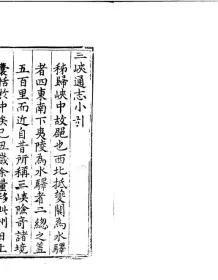 三峽通志小引
秭歸峽中故郡也西北抵夔關為水驛
者四東南下夷陵為水驛者二總之蓋
五百里而近自昔所稱三峽險奇諸境
囊括於中矣己丑歲余量移此州日上